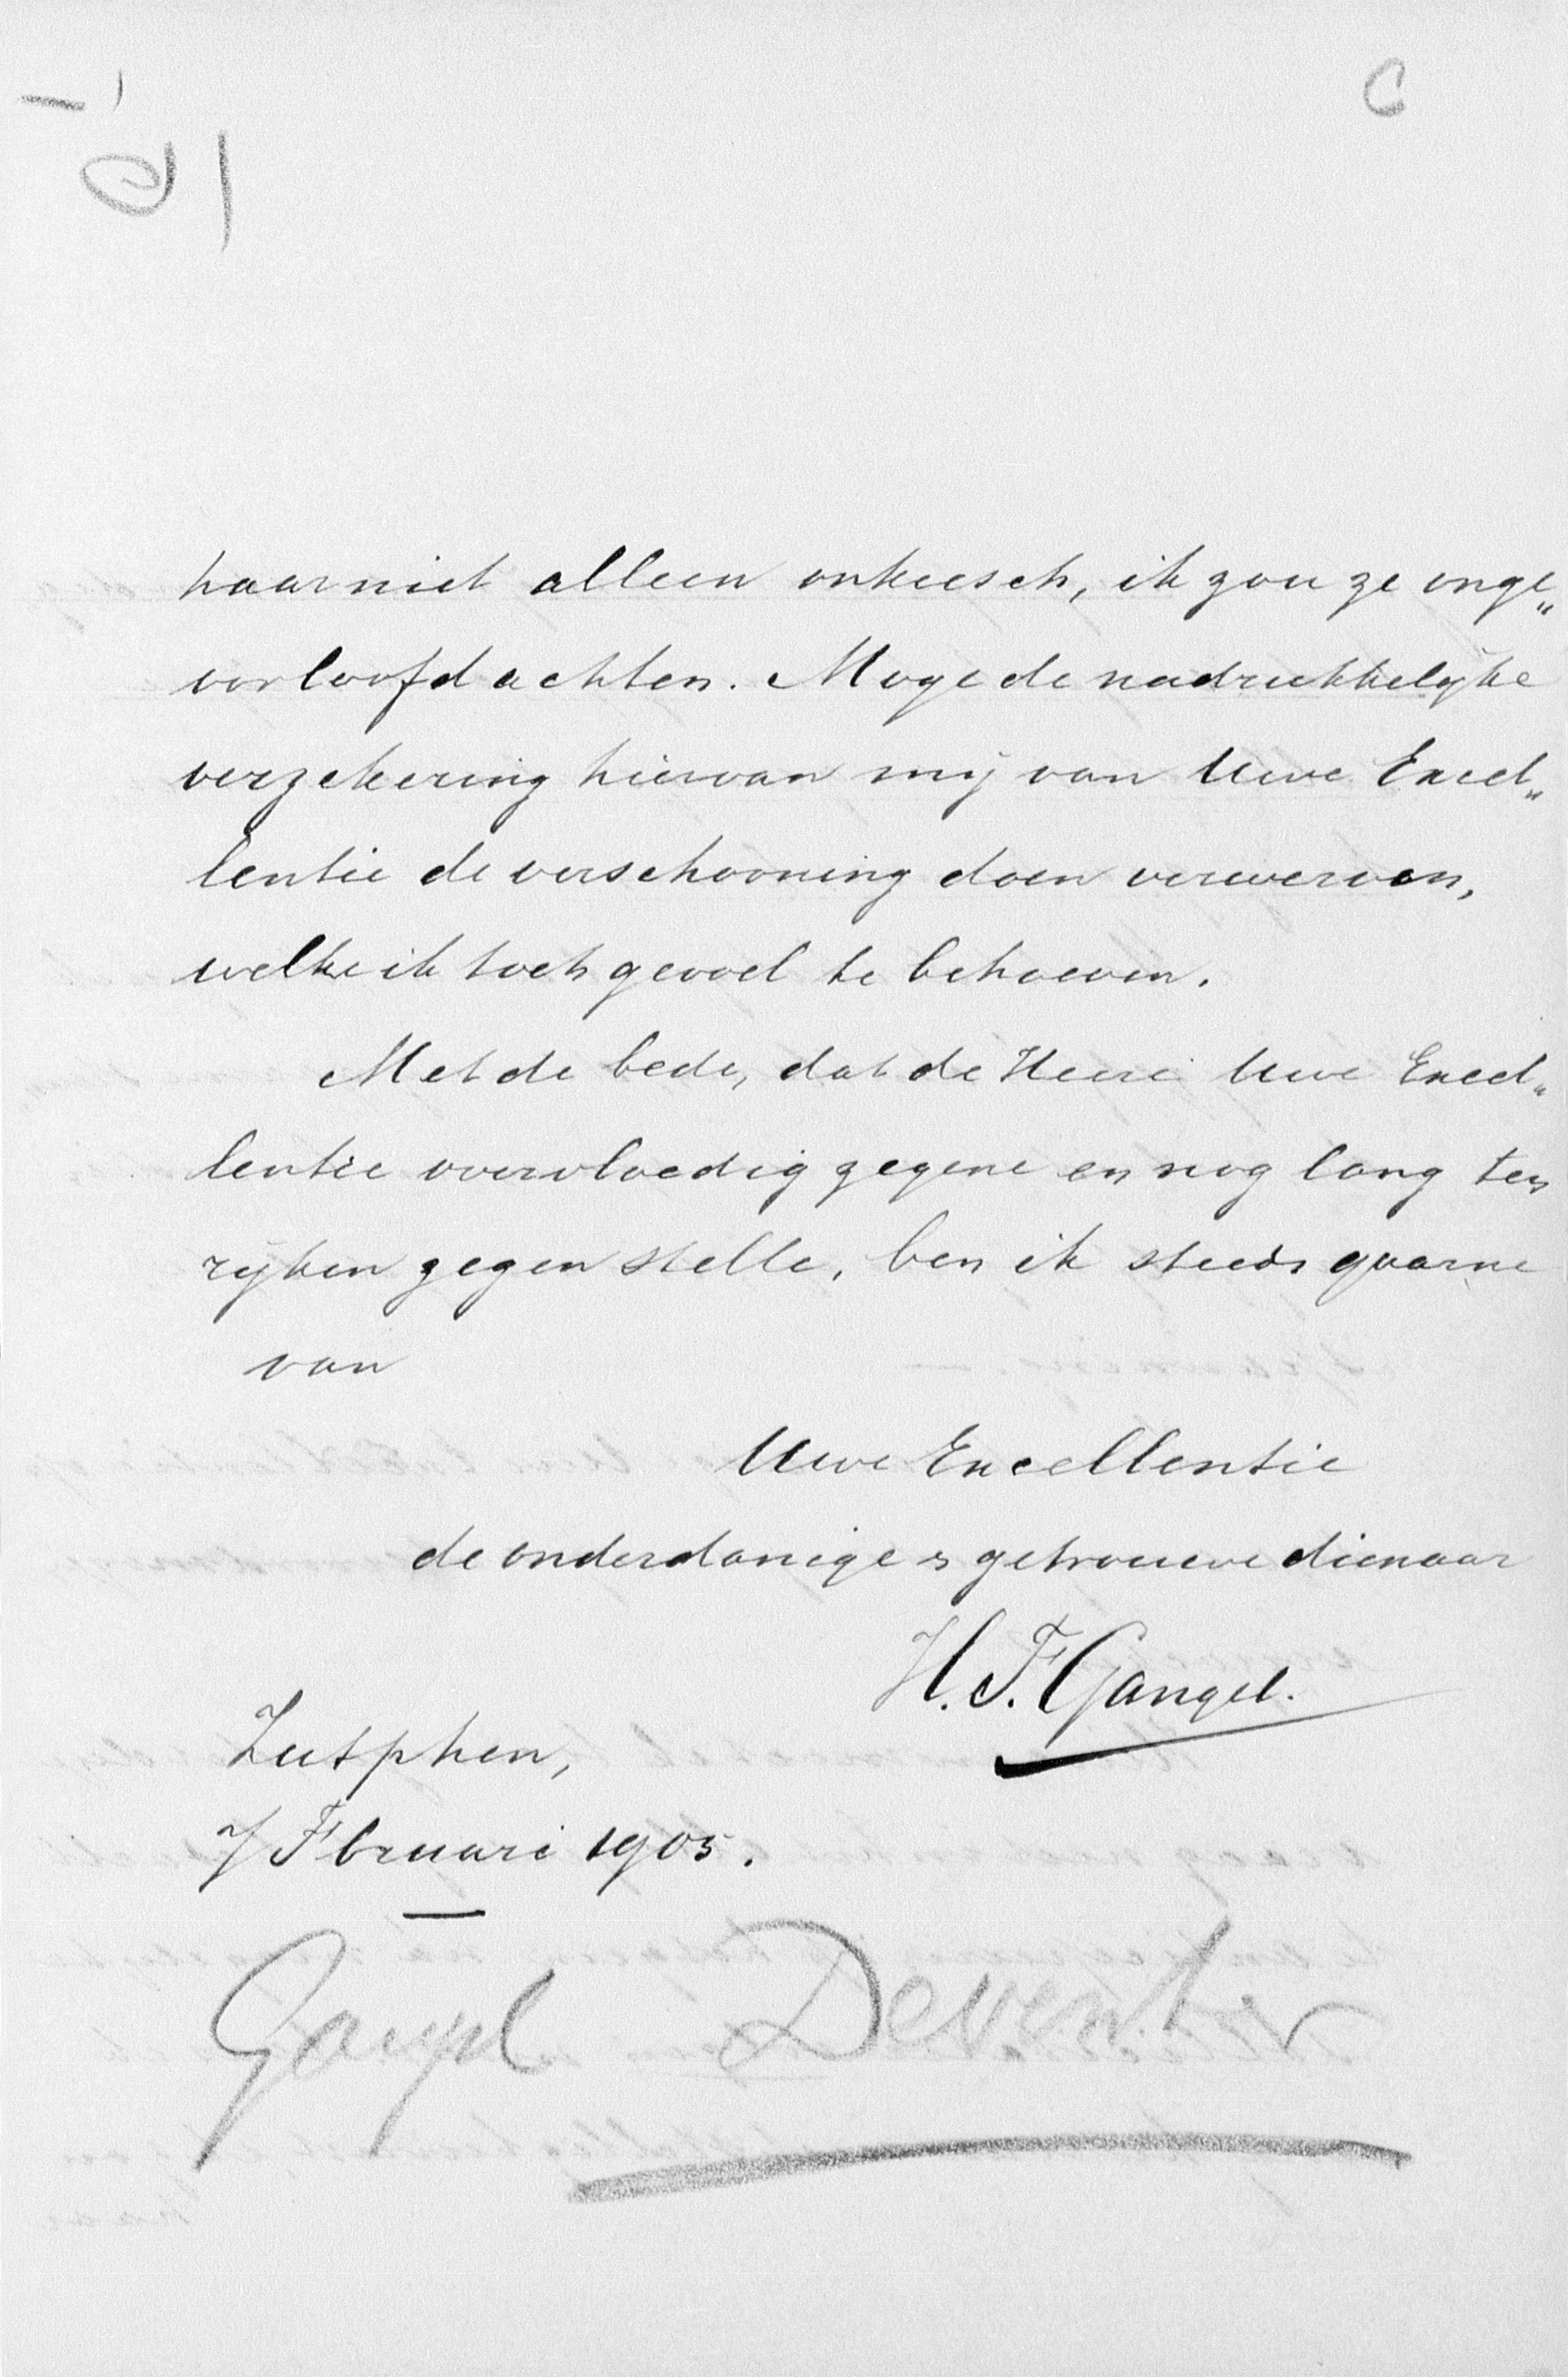 C
haar niet alleen onkiesch, ik zou ze onge„
oorloofd achten. Moge de nadrukkelijke
verzekering hiervan mij van Uwe Excel„
lentie de verschooning doen verwerven,
welke ik toch gevoel te behoeven.
Met de bede, dat de Heere Uwe Excel„
lentie overvloedig zegene en nog lang ten
rijken zegen stelle, ben ik steeds gaarne
van
Uwe Excellentie
de onderdanige & getrouwe dienaar
H. F. Gangel.
Zutphen,
7 Fbruari 1905.
Gangel Deventer